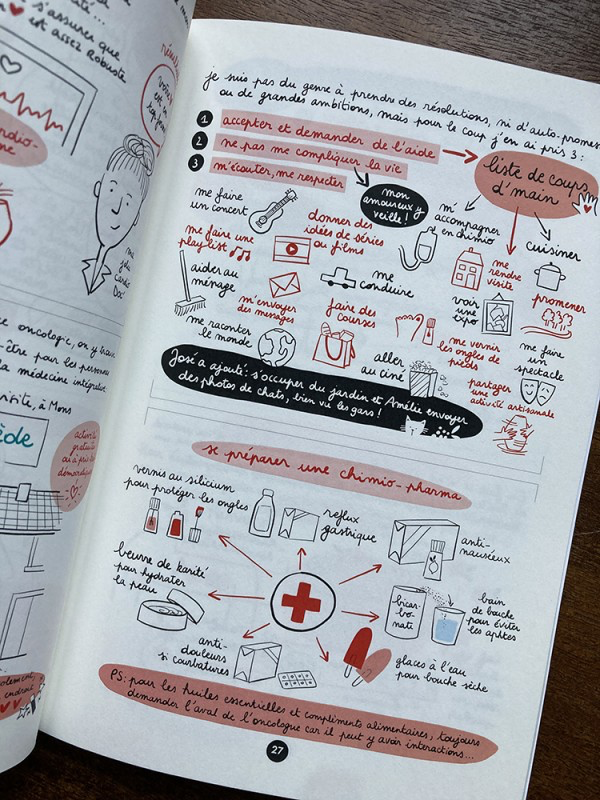 s'assurer que
est assez robuste
je suis pas du genre à prendre des résolutions, ni d'auto-promes
ou de grandes ambitions, mais pour le coup j'en ai pris 3 :
1 accepter et demander de l'aide
2 ne pas me compliquer la vie
3 m'écouter, me respecter
liste de coups
d'main
mon
amoureux y
veille !
me faire
un concert
donner des
idées de séries
ou films
m'
accompagner
en chimio
cuisiner
me faire une
playlist
me
rendre
visite
aider au
ménage
m'envoyer
des messages
me
conduire
voir
une
expo
promener
me raconter
le monde
faire des
courses
me vernir
les ongles de
pieds
me faire
un
spectacle
aller
au ciné
partager
une
activité artisanale
José a ajouté : s'occuper du jardin et Amélie envoyer
des photos de chats, bien vu les gars !
se préparer une chimio-pharma
vernis au silicium
pour protéger les ongles
reflux
gastrique
anti-
nauséeux
beurre de karité
pour hydrater
la peau
bicar-
bo
nate
bain
de bouche
pour éviter
les aphtes
anti-
douleurs
si courbatures
glaces à l'eau
pour bouche sèche
PS : pour les huiles essentielles et compliments alimentaires, toujours
demander l'aval de l'oncologue car il peut y avoir interactions...
27
oncologie, on y trouve
-être pour les personnes
la médecine intégrative
à Mons